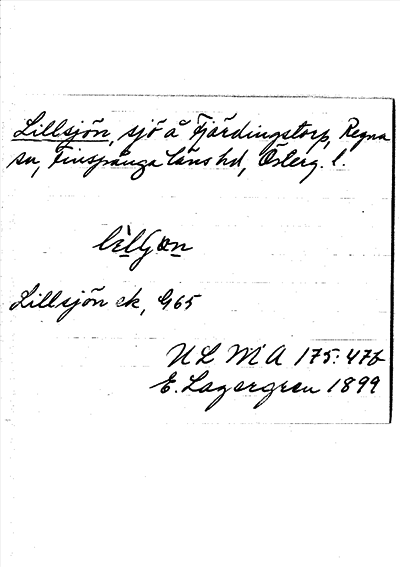 Lillsjön, sjö å Fjärdingstorp, Regna
sn, Finspånga läns hd, Österg. l.
Lillsjön ek, G65
ULMA 175: 47b
E. Lagergren 1899